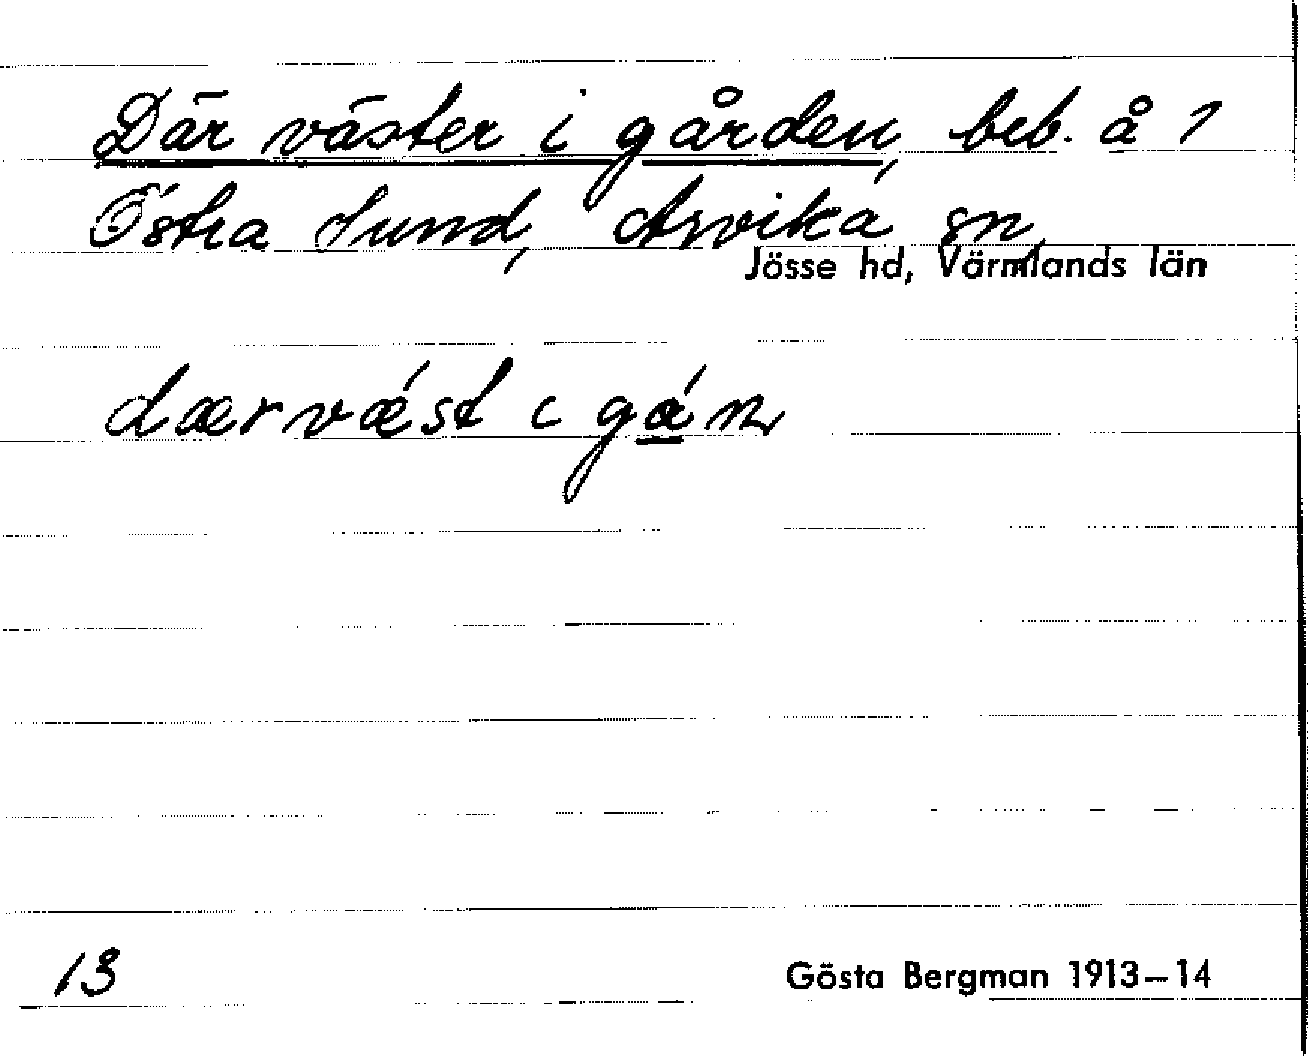 Där väster i gården, beb. å 1
Östra Sund, Arvika sn,
Jösse hd, Värmlands län
dærvǽst i gá̱ɳ
13
Gösta Bergman 1913–14